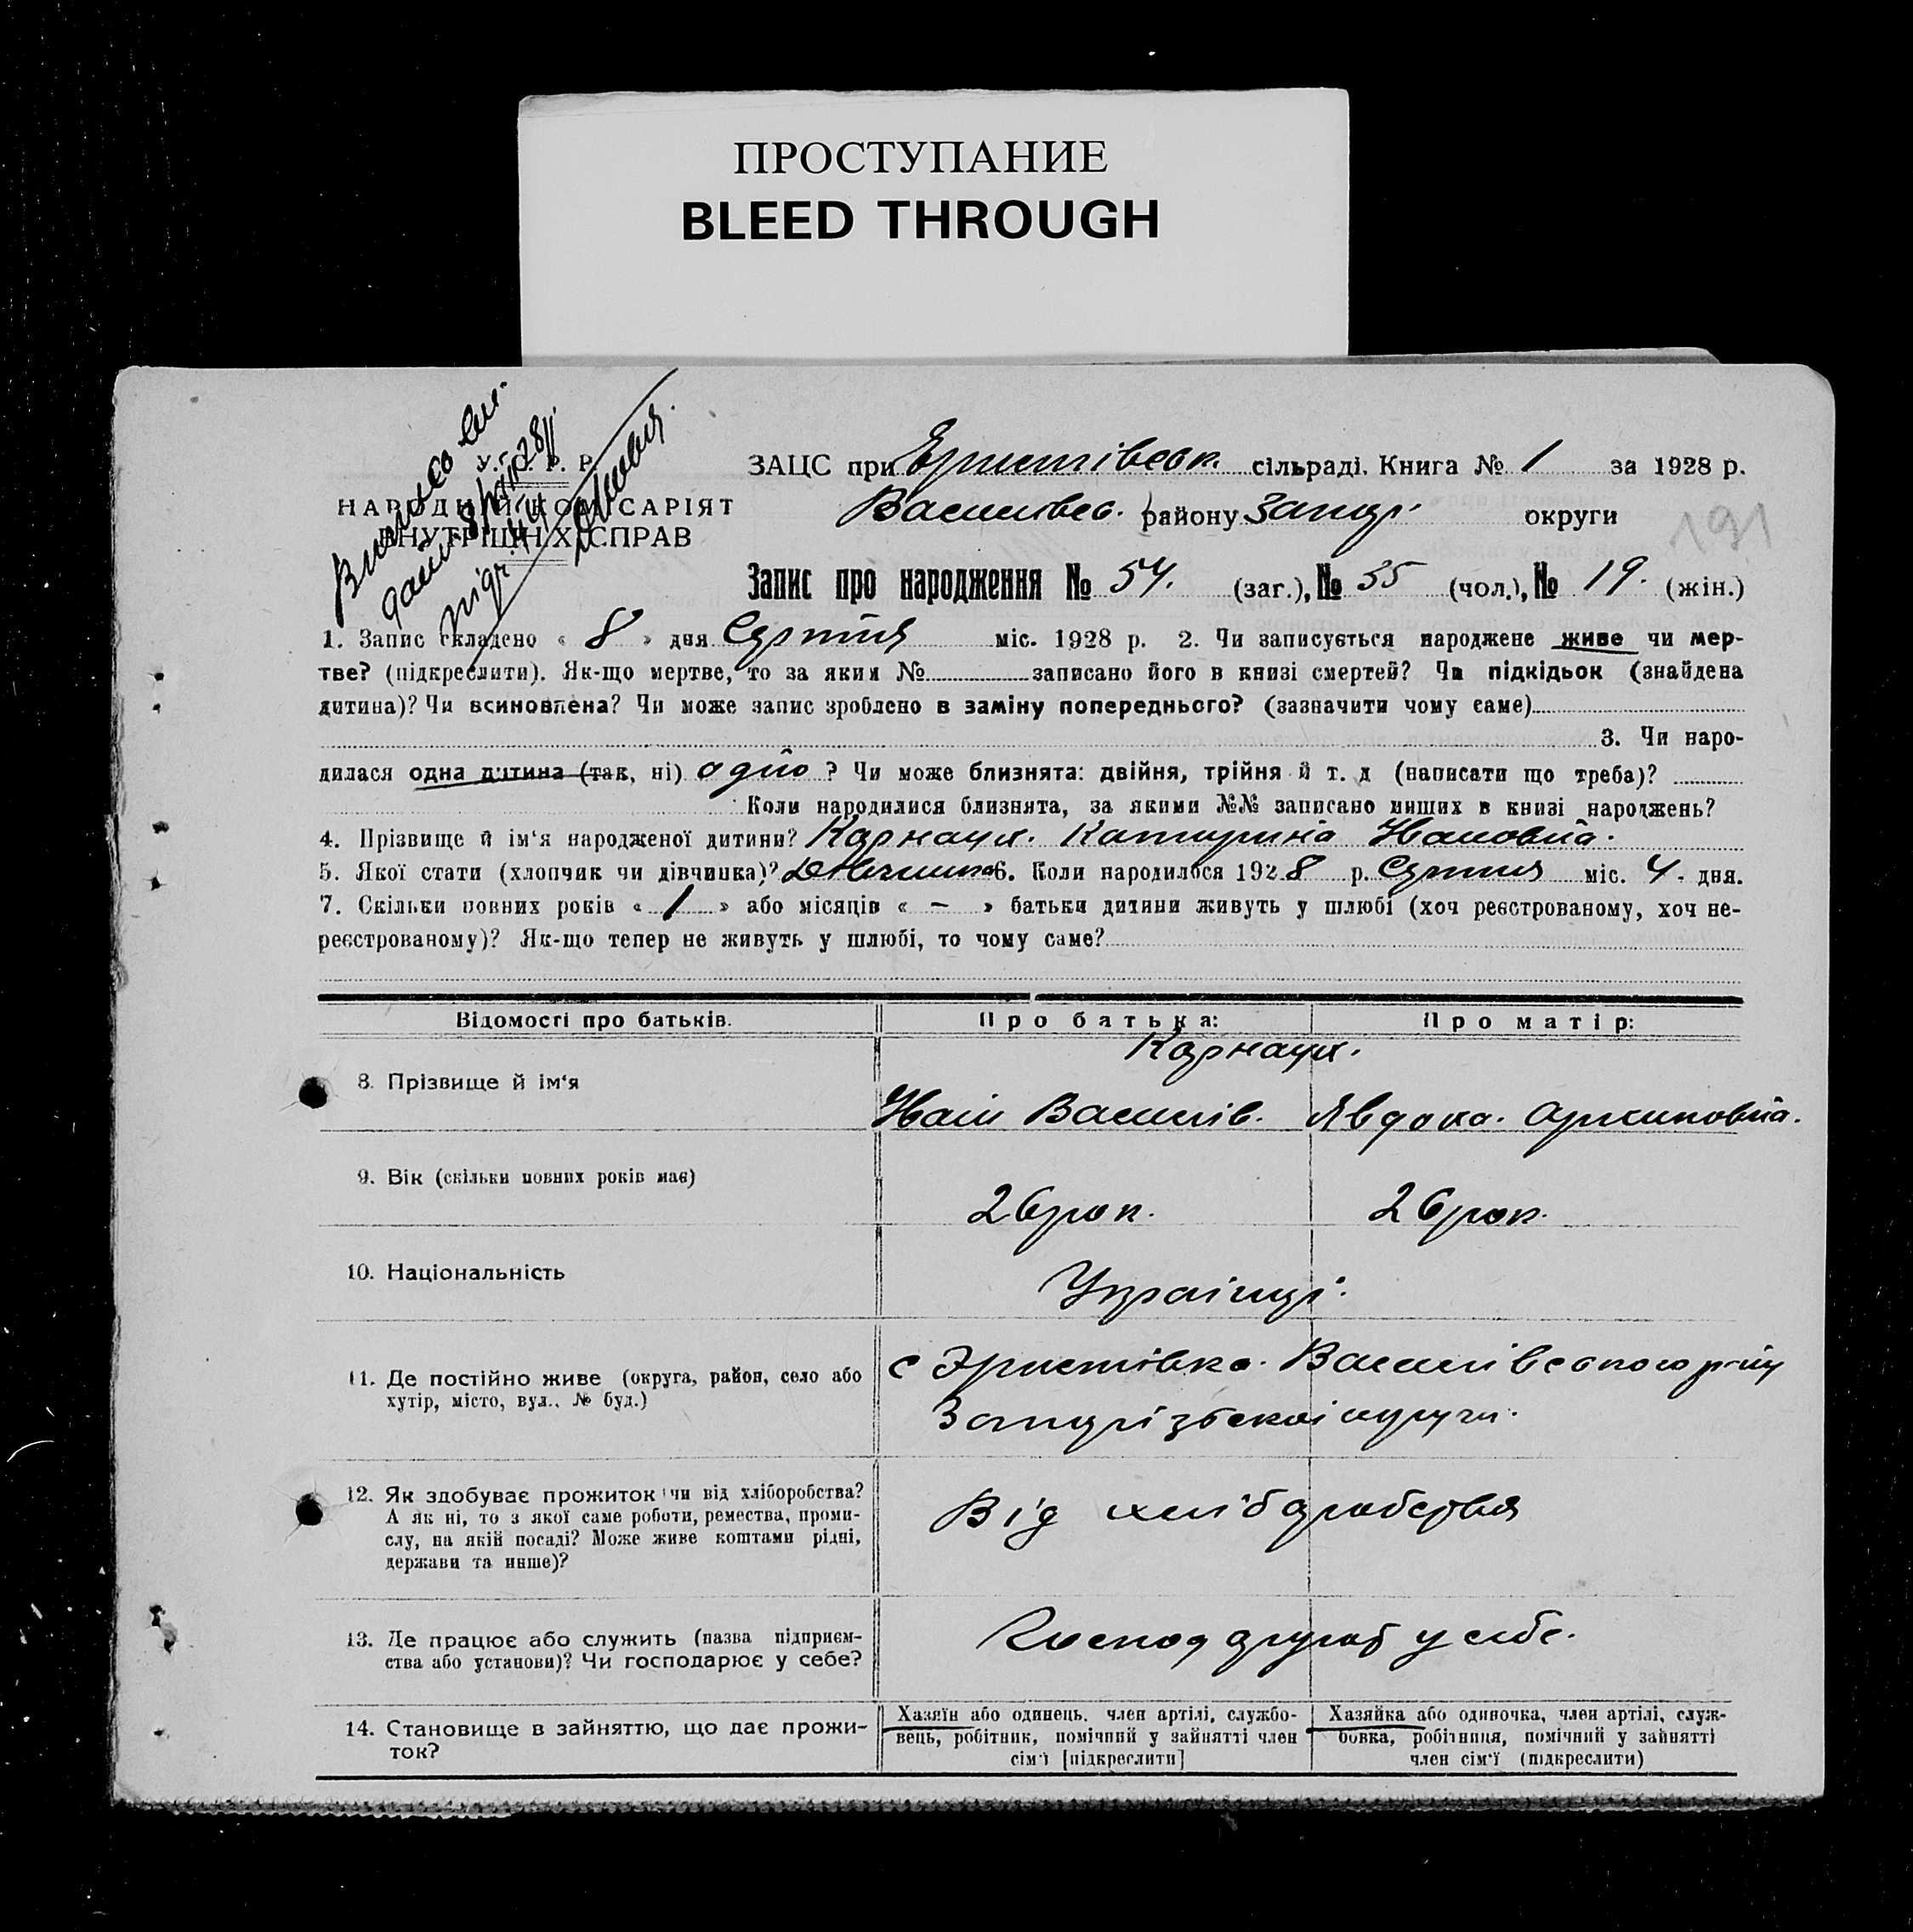 ПРОСТУПАНИЕ
BLEED THROUGH
У. С. Р. Р.
НАРОДНІЙ КОМІСАРІЯТ
ВНУТРІШНІХ СПРАВ
ЗАЦС при сільраді. Книга № 1 за 1928 р.
Василівсь. району Запор. округи
191
Запис про народження № 54. (заг.), № 35 (чол.), № 19. (жін.)
1. Запис складено « 8 » дня Серпня міс. 1928 р. 2. Чи записується народжене живе чи мер-
тве? (підкреслити). Як-що мертве, то за яким № записано його в книзі смертей? Чи підкідьок (знайдена
дитина)? Чи всиновлена? Чи може запис зроблено в заміну попереднього? (зазначити чому саме)
3. Чи наро-
дилася одна дитина (так, ні) одно ? Чи може близнята: двійня, трійня й т. д (написати що треба)?
Коли народилися близнята, за якими №№ записано инших в книзі народжень?
4. Прізвище й ім'я народженої дитини? Карнаух. Катирина Ивановна.
5. Якої стати (хлопчик чи дівчинка)? 6. Коли народилося 1928 р. Серпня міс. 4. дня.
7. Скільки повних років « 1 » або місяців « — » батьки дитини живуть у шлюбі (хоч реєстрованому, хоч не-
реєстрованому)? Як-що тепер не живуть у шлюбі, то чому саме?
Відомості про батьків. Про батька: Про матір:
Карнаух.
8. Прізвище й ім'я
Иван Василів. Явдока.
9. Вік (скільки повних років має)
26 рок. 26 рок.
10. Національність
Українці.
11. Де постійно живе (округа, район, село або
хутір, місто, вул., № буд.)
с Эристівка. Василівського р-ну
Запорізької округи.
12. Як здобуває прожиток чи від хліборобства?
А як ні, то з якої саме роботи, ремества, проми-
слу, на якій посаді? Може живе коштами рідні,
держави та инше)?
Від хліборобства
13. Де працює або служить (назва підприєм-
ства або установи)? Чи господарює у себе?
у себе.
14. Становище в зайняттю, що дає прожи-
ток?
Хазяїн або одинець, член артілі, службо-
вець, робітник, помічний у зайнятті член
сім'ї [підкреслити]
Хазяйка або одиночка, член артілі, служ-
бовка, робітниця, помічний у зайнятті
член сім'ї (підкреслити)